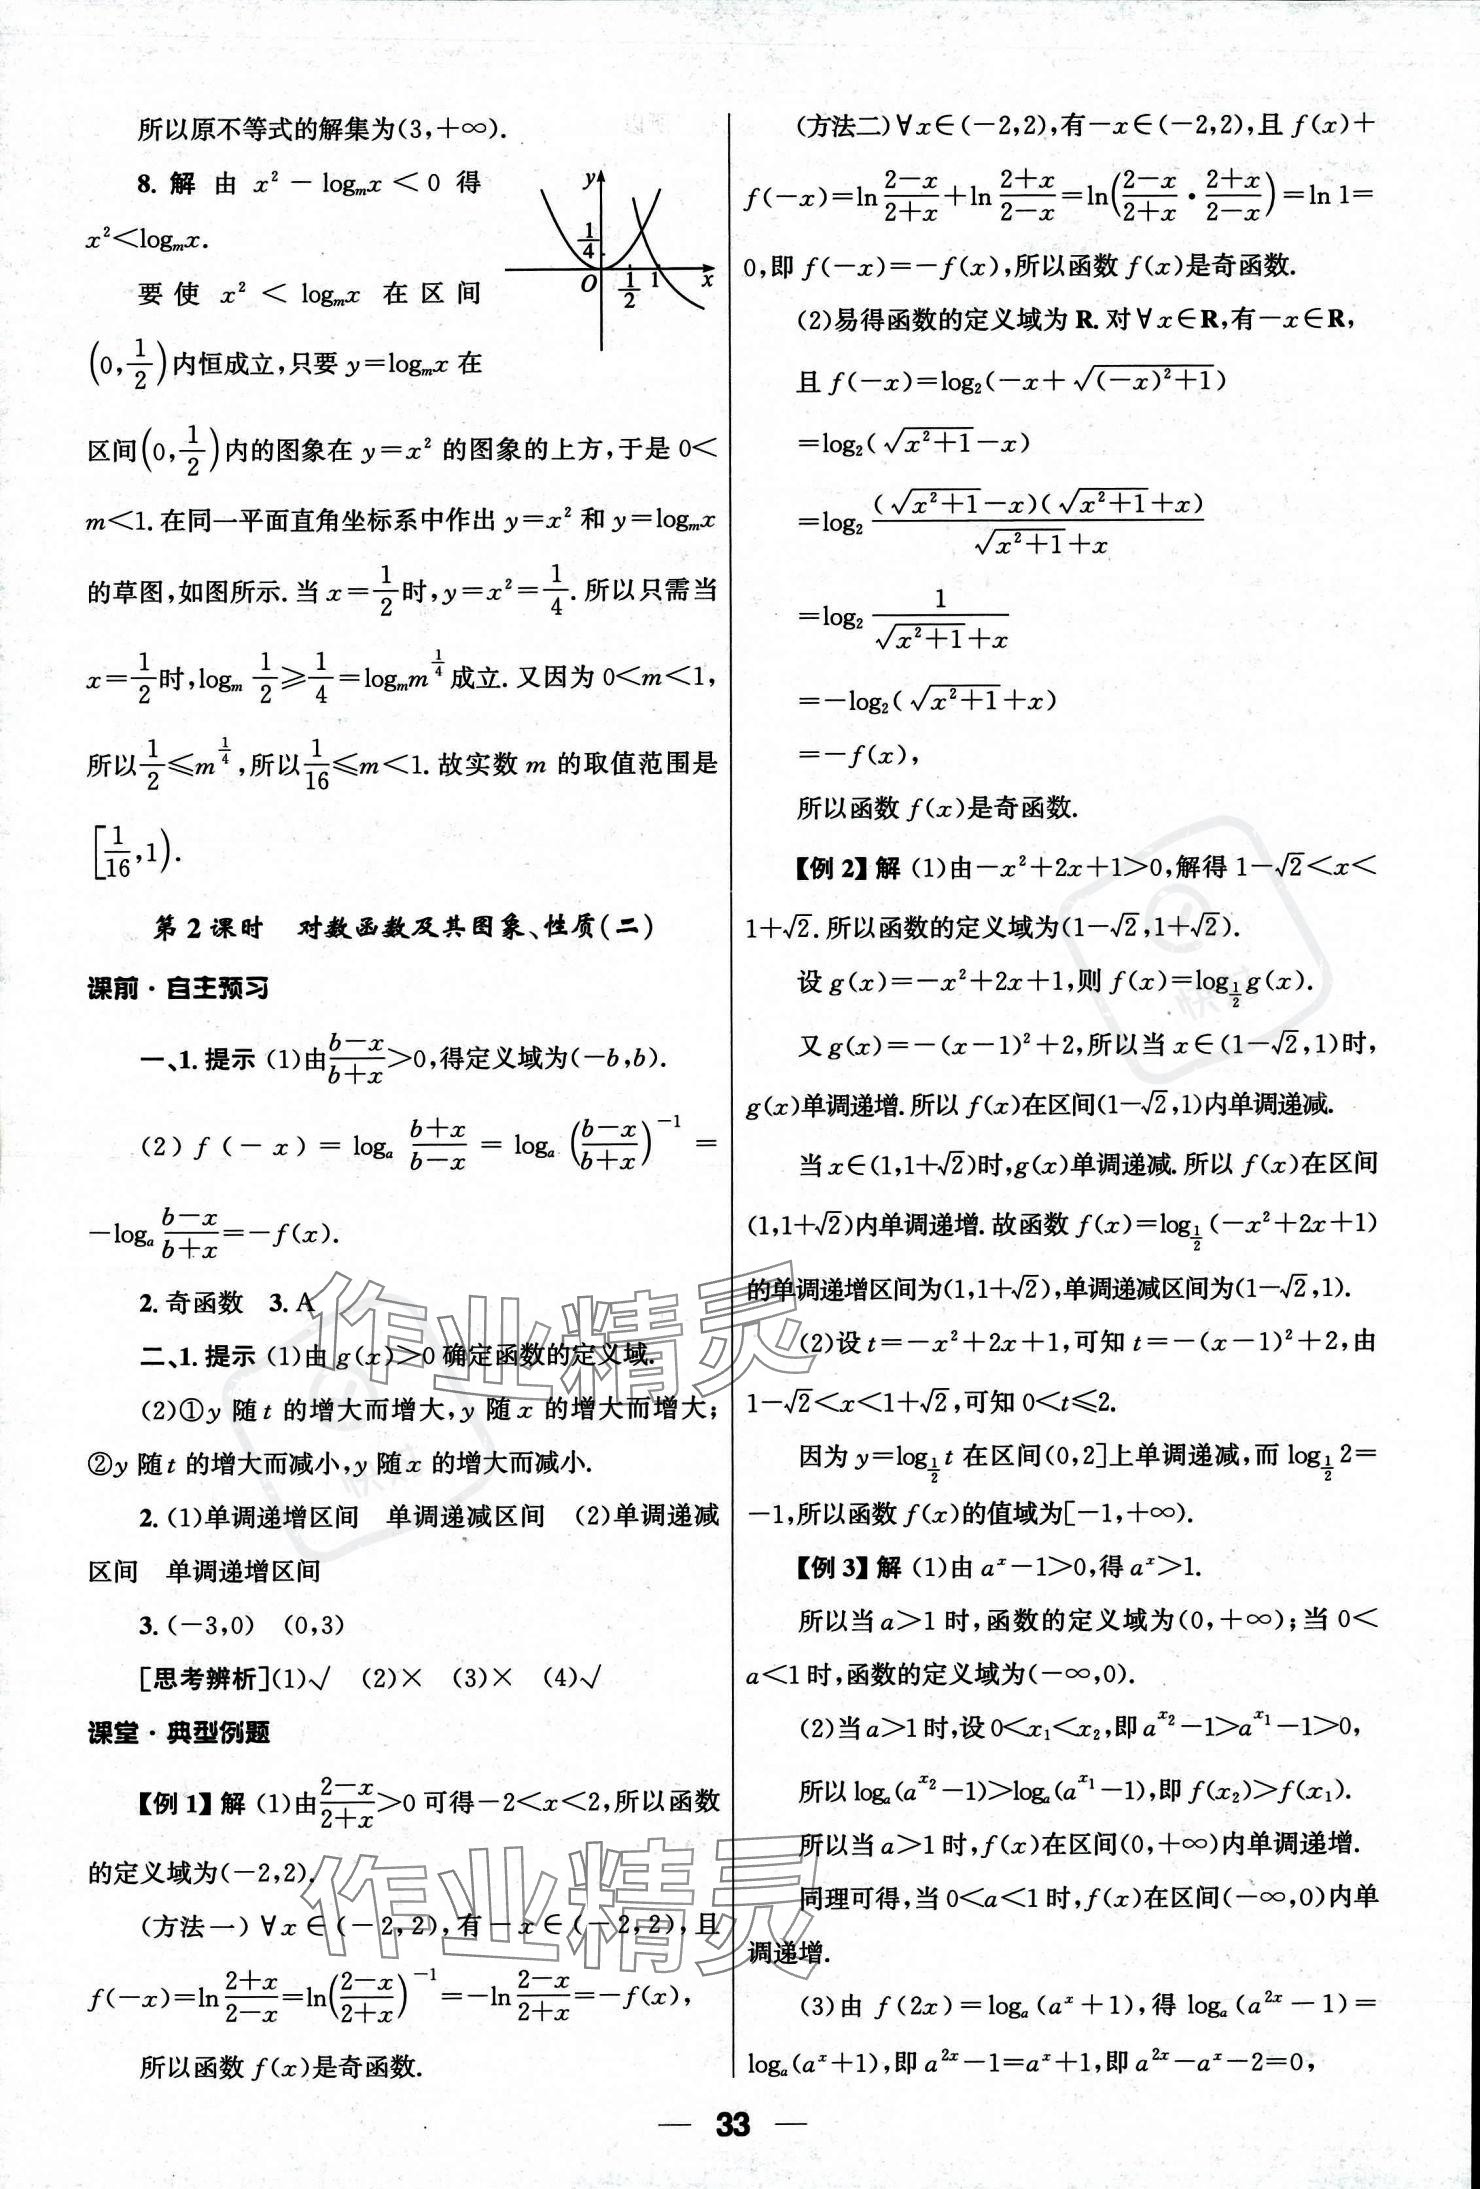 所以原不等式的解集为(3,+∞).
8. 解 由 x²－logₘx＜0 得
x²＜logₘx.
要使 x²＜logₘx 在区间
(0,1/2)内恒成立,只要 y＝logₘx 在
y
1/4
O
1/2
1
x
区间(0,1/2)内的图象在 y＝x² 的图象的上方,于是 0＜
m＜1. 在同一平面直角坐标系中作出 y＝x² 和 y＝logₘx
的草图,如图所示. 当 x＝1/2时,y＝x²＝1/4. 所以只需当
x＝1/2时,logₘ 1/2≥1/4＝logₘm^(1/4)成立. 又因为 0＜m＜1,
所以1/2≤m^(1/4),所以1/16≤m＜1. 故实数 m 的取值范围是
[1/16,1).
第2课时 对数函数及其图象、性质(二)
课前·自主预习
一、1. 提示 (1)由(b－x)/(b＋x)＞0,得定义域为(－b,b).
(2) f(－x)＝logₐ (b＋x)/(b－x)＝logₐ ((b－x)/(b＋x))⁻¹＝
－logₐ (b－x)/(b＋x)＝－f(x).
2. 奇函数 3. A
二、1. 提示 (1)由 g(x)＞0 确定函数的定义域.
(2)①y 随 t 的增大而增大,y 随 x 的增大而增大;
②y 随 t 的增大而减小,y 随 x 的增大而减小.
2. (1)单调递增区间 单调递减区间 (2)单调递减
区间 单调递增区间
3. (－3,0) (0,3)
[思考辨析](1)√ (2)× (3)× (4)√
课堂·典型例题
【例 1】解 (1)由(2－x)/(2＋x)＞0 可得－2＜x＜2,所以函数
的定义域为(－2,2).
(方法一)∀x∈(－2,2),有－x∈(－2,2),且
f(－x)＝ln (2＋x)/(2－x)＝ln((2－x)/(2＋x))⁻¹＝－ln (2－x)/(2＋x)＝－f(x),
所以函数 f(x)是奇函数.
(方法二)∀x∈(－2,2),有－x∈(－2,2),且 f(x)＋
f(－x)＝ln (2－x)/(2＋x)＋ln (2＋x)/(2－x)＝ln((2－x)/(2＋x)·(2＋x)/(2－x))＝ln 1＝
0,即 f(－x)＝－f(x),所以函数 f(x)是奇函数.
(2)易得函数的定义域为 R. 对∀x∈R,有－x∈R,
且 f(－x)＝log₂(－x＋√((－x)²＋1))
＝log₂(√(x²＋1)－x)
＝log₂ (√(x²＋1)－x)(√(x²＋1)＋x)/(√(x²＋1)＋x)
＝log₂ 1/(√(x²＋1)＋x)
＝－log₂(√(x²＋1)＋x)
＝－f(x),
所以函数 f(x)是奇函数.
【例 2】解 (1)由－x²＋2x＋1＞0,解得 1－√2＜x＜
1＋√2. 所以函数的定义域为(1－√2,1＋√2).
设 g(x)＝－x²＋2x＋1,则 f(x)＝log_(1/2) g(x).
又 g(x)＝－(x－1)²＋2,所以当 x∈(1－√2,1)时,
g(x)单调递增. 所以 f(x)在区间(1－√2,1)内单调递减.
当 x∈(1,1＋√2)时,g(x)单调递减. 所以 f(x)在区间
(1,1＋√2)内单调递增. 故函数 f(x)＝log_(1/2) (－x²＋2x＋1)
的单调递增区间为(1,1＋√2),单调递减区间为(1－√2,1).
(2)设 t＝－x²＋2x＋1,可知 t＝－(x－1)²＋2,由
1－√2＜x＜1＋√2,可知 0＜t≤2.
因为 y＝log_(1/2) t 在区间(0,2]上单调递减,而 log_(1/2) 2＝
－1,所以函数 f(x)的值域为[－1,＋∞).
【例 3】解 (1)由 aˣ－1＞0,得 aˣ＞1.
所以当 a＞1 时,函数的定义域为(0,＋∞);当 0＜
a＜1 时,函数的定义域为(－∞,0).
(2)当 a＞1 时,设 0＜x₁＜x₂,即 a^(x₂)－1＞a^(x₁)－1＞0,
所以 logₐ(a^(x₂)－1)＞logₐ(a^(x₁)－1),即 f(x₂)＞f(x₁).
所以当 a＞1 时,f(x)在区间(0,＋∞)内单调递增.
同理可得,当 0＜a＜1 时,f(x)在区间(－∞,0)内单
调递增.
(3)由 f(2x)＝logₐ(aˣ＋1),得 logₐ(a²ˣ－1)＝
logₐ(aˣ＋1),即 a²ˣ－1＝aˣ＋1,即 a²ˣ－aˣ－2＝0,
— 33 —
作业精灵
作业精灵